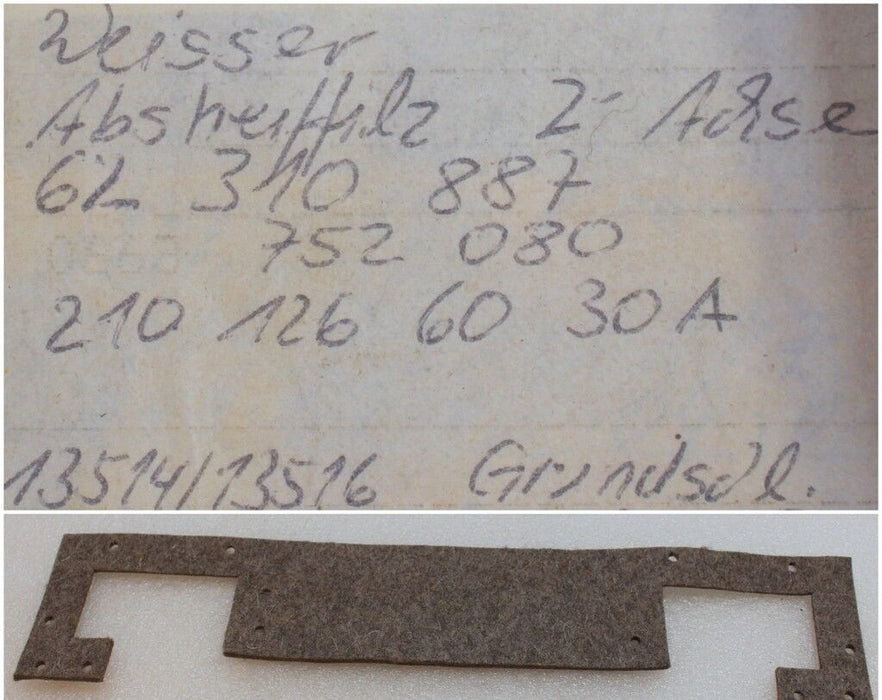 Weisser
Abstreiffilz Z-Achse
GZ 310 887
752 080
210 126 60 30 A
13514/13516 Grundschl.